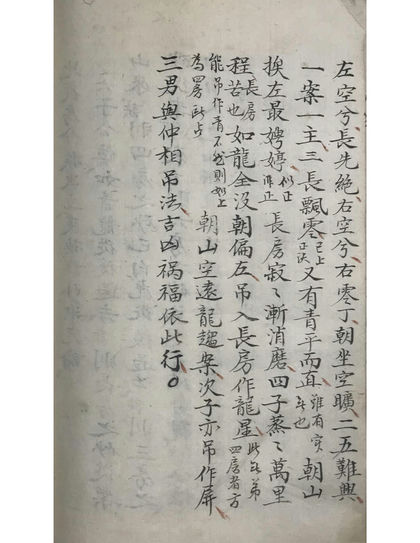 左空兮長先絶右空兮右零丁朝坐空曠二五難興
一案一主三長飄零已上正決又有青平而直雖有实无也朝山
挨左最娉婷似正非正長房寂〻漸消磨四子蒸〻萬里
程長房苦也如龍全没朝偏左吊入長房作龍星此无弟四房者方
能吊作青不然則如上為四房斷占朝山空遠龍趨案次子亦吊作屏
三男與仲相吊法吉凶禍福依此行。